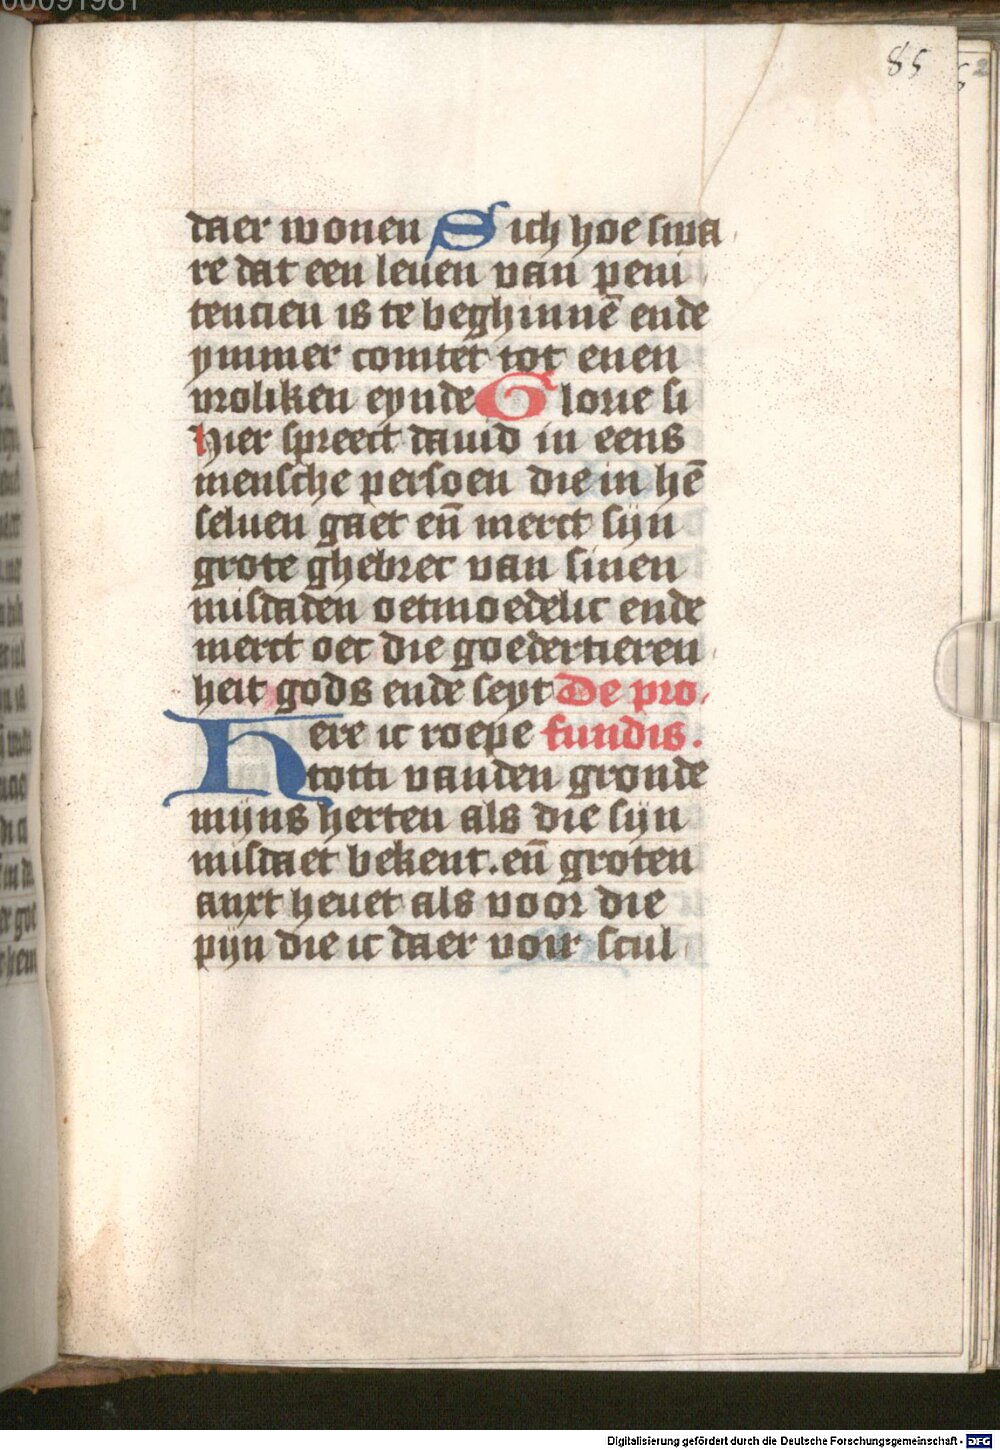 00091981
85
daer wonen Sich hoe swa
re dat een leuen van peni
tencien is te beghinnē ende
ymmer comtet tot enen
vroliken eynde Glorie si
hier spreect dauid in eens
mensche persoen die in hē
seluen gaet eñ merct sijn
grote ghebrec van sinen
misdaden oetmoedelic ende
merct oec die goedertieren
heit gods ende seyt De pro
Here ic roepe fundis.
totti vanden gronde
mijns herten als die sijn
misdaet bekent. eñ groten
anxt heuet als voor die
pijn die ic daer voir scul
Digitalisierung gefördert durch die Deutsche Forschungsgemeinschaft - DFG